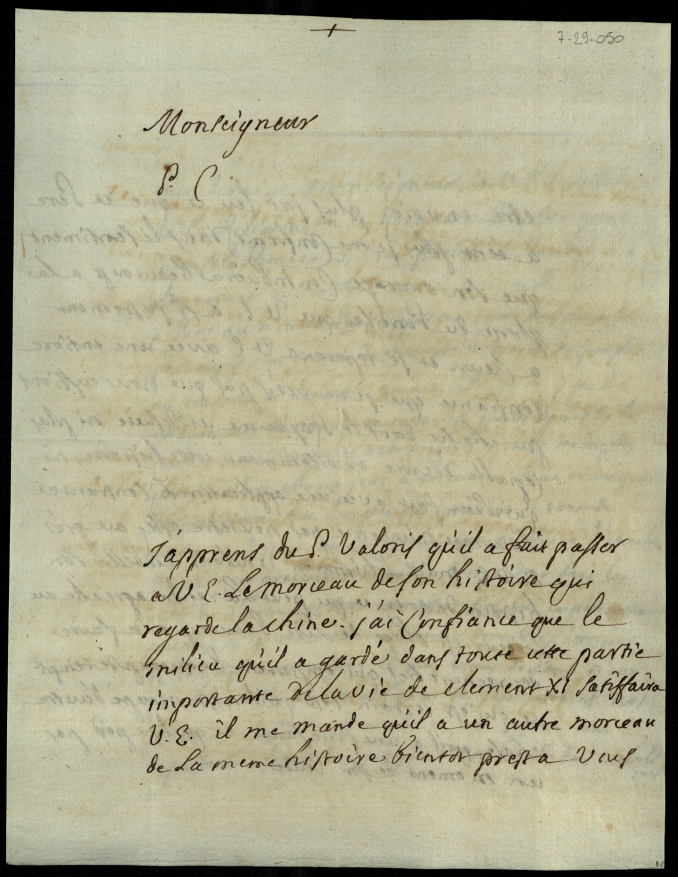 7-29-050
Monseigneur
P. C
J'apprens du P. Valoris qu'il a fait passer
a V. E. Le morceau de son histoire qui
regarde la chine. j'ai Confiance que le
milieu qu'il a gardé dans toute cette partie
importante De la vie de clement XI satisfaira
V. E. il me mande qu'il a un autre morceau
de La meme histoire bientot prest a Vous